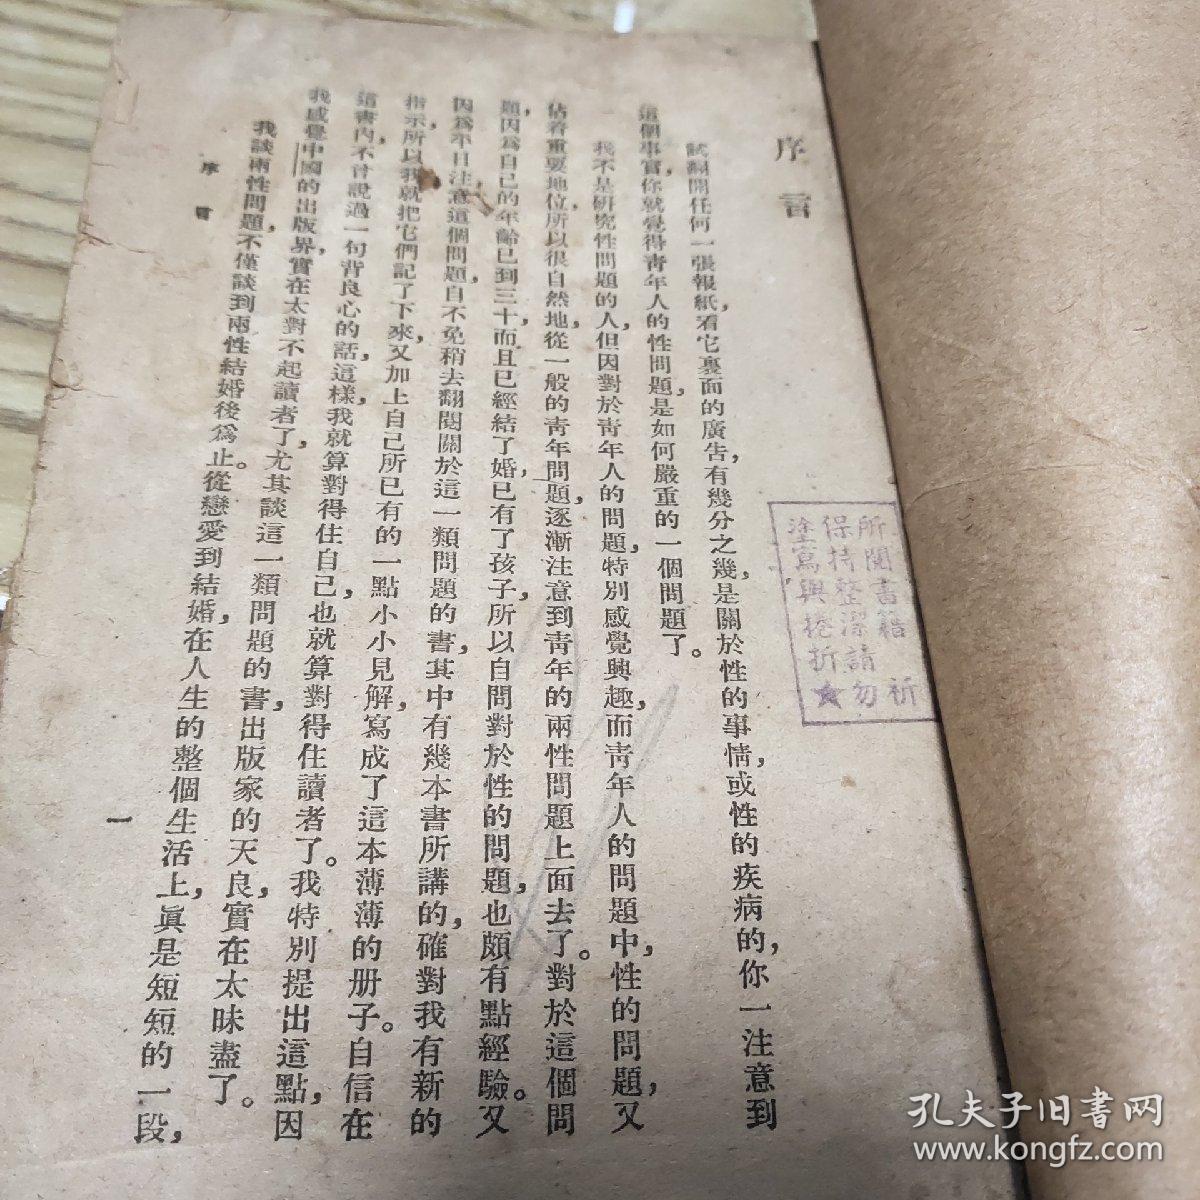 序言
試翻開任何一張報紙，看它裏面的廣告，有幾分之幾，是關於性的事情，或性的疾病的，你一注意到
這個事實，你就覺得靑年人的性問題，是如何嚴重的一個問題了。
我不是研究性問題的人，但因對於靑年人的問題，特別感覺興趣，而靑年人的問題中，性的問題，又
佔着重要地位，所以很自然地，從一般的靑年問題，逐漸注意到靑年的兩性問題上面去了。對於這個問
題，因爲自己的年齡已到三十，而且已經結了婚，已有了孩子，所以自問對於性的問題，也頗有點經驗。又
因爲平日注意這個問題，自不免稍去翻閱關於這一類問題的書，其中有幾本書所講的，確對我有新的
指示，所以我就把它們記了下來，又加上自己所已有的一點小小見解，寫成了這本薄薄的册子。自信在
這書內，不曾說過一句背良心的話，這樣，我就算對得住自己，也就算對得住讀者了。我特別提出這點，因
我感覺中國的出版界，實在太對不起讀者了，尤其談這一類問題的書，出版家的天良，實在太昧盡了。
我談兩性問題，不僅談到兩性結婚後爲止。從戀愛到結婚，在人生的整個生活上，眞是短短的一段，
序言
一
所閱書籍祈
保持整潔請勿
塗寫與捲折★
孔夫子旧书网
www.kongfz.com